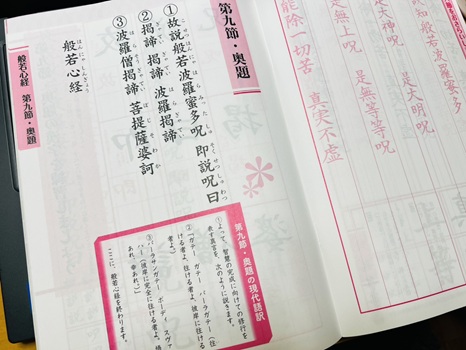 是大神呪
是無上呪
能除一切苦
知般若波羅蜜多
是大明呪
是無等等呪
真実不虚
第九節・奥題
①故説般若波羅蜜多呪 即説呪曰
②揭諦 揭諦 波羅揭諦
③波羅僧揭諦 菩提薩婆訶
般若心経
はんにゃしんぎょう
般若心経 第九節・奥題
第九節・奥題の現代語訳
①よって、智慧の完成に向けての修行を
表す真言を、次のように説きます。
②「ガテー ガテー パーラガテー（往
ける者よ、往ける者よ、彼岸に往ける
者よ）、
③パーラサンガテー ボーディ スヴァ
ーハー（彼岸に完全に往ける者よ、悟
あれ、幸あれ。）」
ここに、般若心経を終わります。